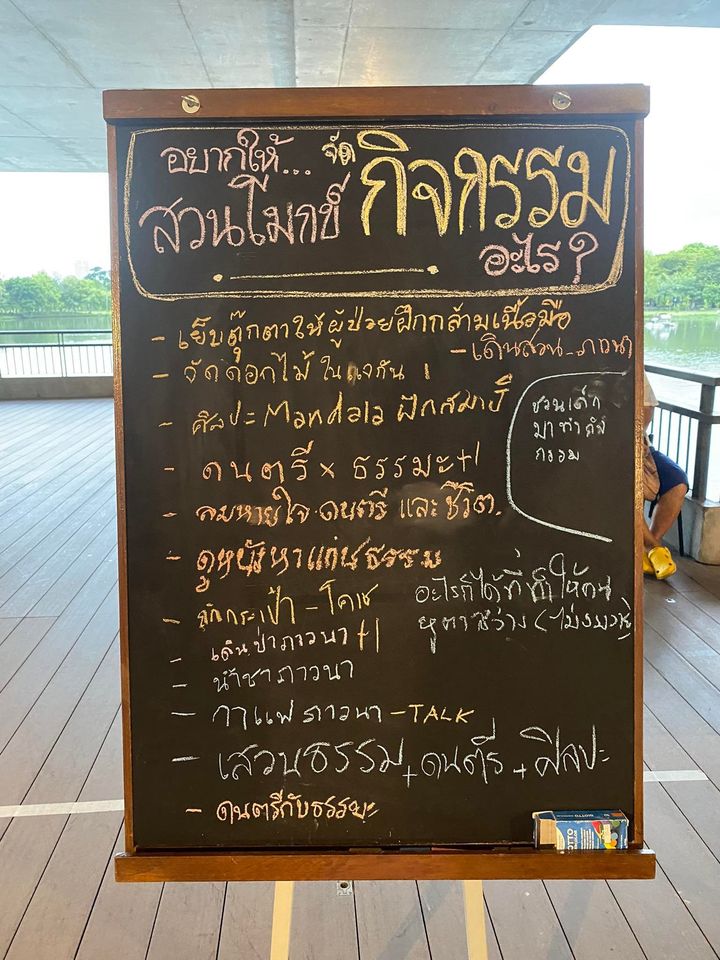 อยากให้... จัด กิจกรรม
สวนโมกข์
อะไร?
- เย็บตุ๊กตาให้ผู้ป่วยฝึกกล้ามเนื้อมือ
- เดินสวน - ภาวนา
- จัดดอกไม้ ในแจกัน 1
- ศิลปะ Mandala ฝึกสมาธิ
ชวนเด็ก
มาทำกิจ
กรรม
- ดนตรี x ธรรมะ +1
- ลมหายใจ ดนตรี และ ชีวิต.
- ดูหนังหาแก่นธรรม
- ถักกระเป๋า - โคเช
อะไรก็ได้ที่ทำให้คน
หูตาสว่าง (ไม่งมงาย)
- เดินป่าภาวนา +1
- น้ำชาภาวนา
- กาแฟภาวนา - TALK
- เสวนธรรม + ดนตรี + ศิลปะ
- ดนตรีกับธรรมะ